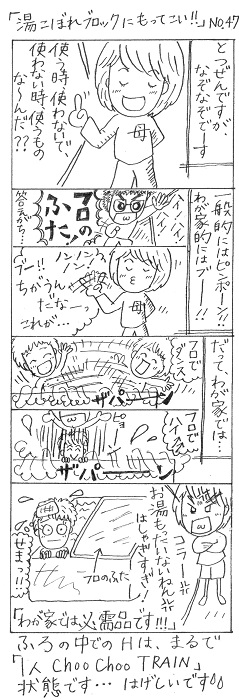 「湯こぼれブロックにもってこい!!」No.47
とつぜんですが、
なぞなぞです
使う時 使わないで、
使わない時 使うもの
な〜んだ??
母
一般的にはピンポーン!!
わが家的にはブー!!
イ
イ
フロの
ふた!
答えがち…
ブー!! ノンノン
ノンノン
ちがうんだなー
これが…
母
だって、わが家では…
フロで
ダンス
ザパーン
フロで
イェイ
ザパーン
コラーッ
お湯もったいないねん
はしゃぎすぎ!!
フロのふた
せまっ!!
「わが家では必需品です!!」
ふろの中でのHは、まるで
「1人 Choo Choo TRAIN」
状態です…はげしいです